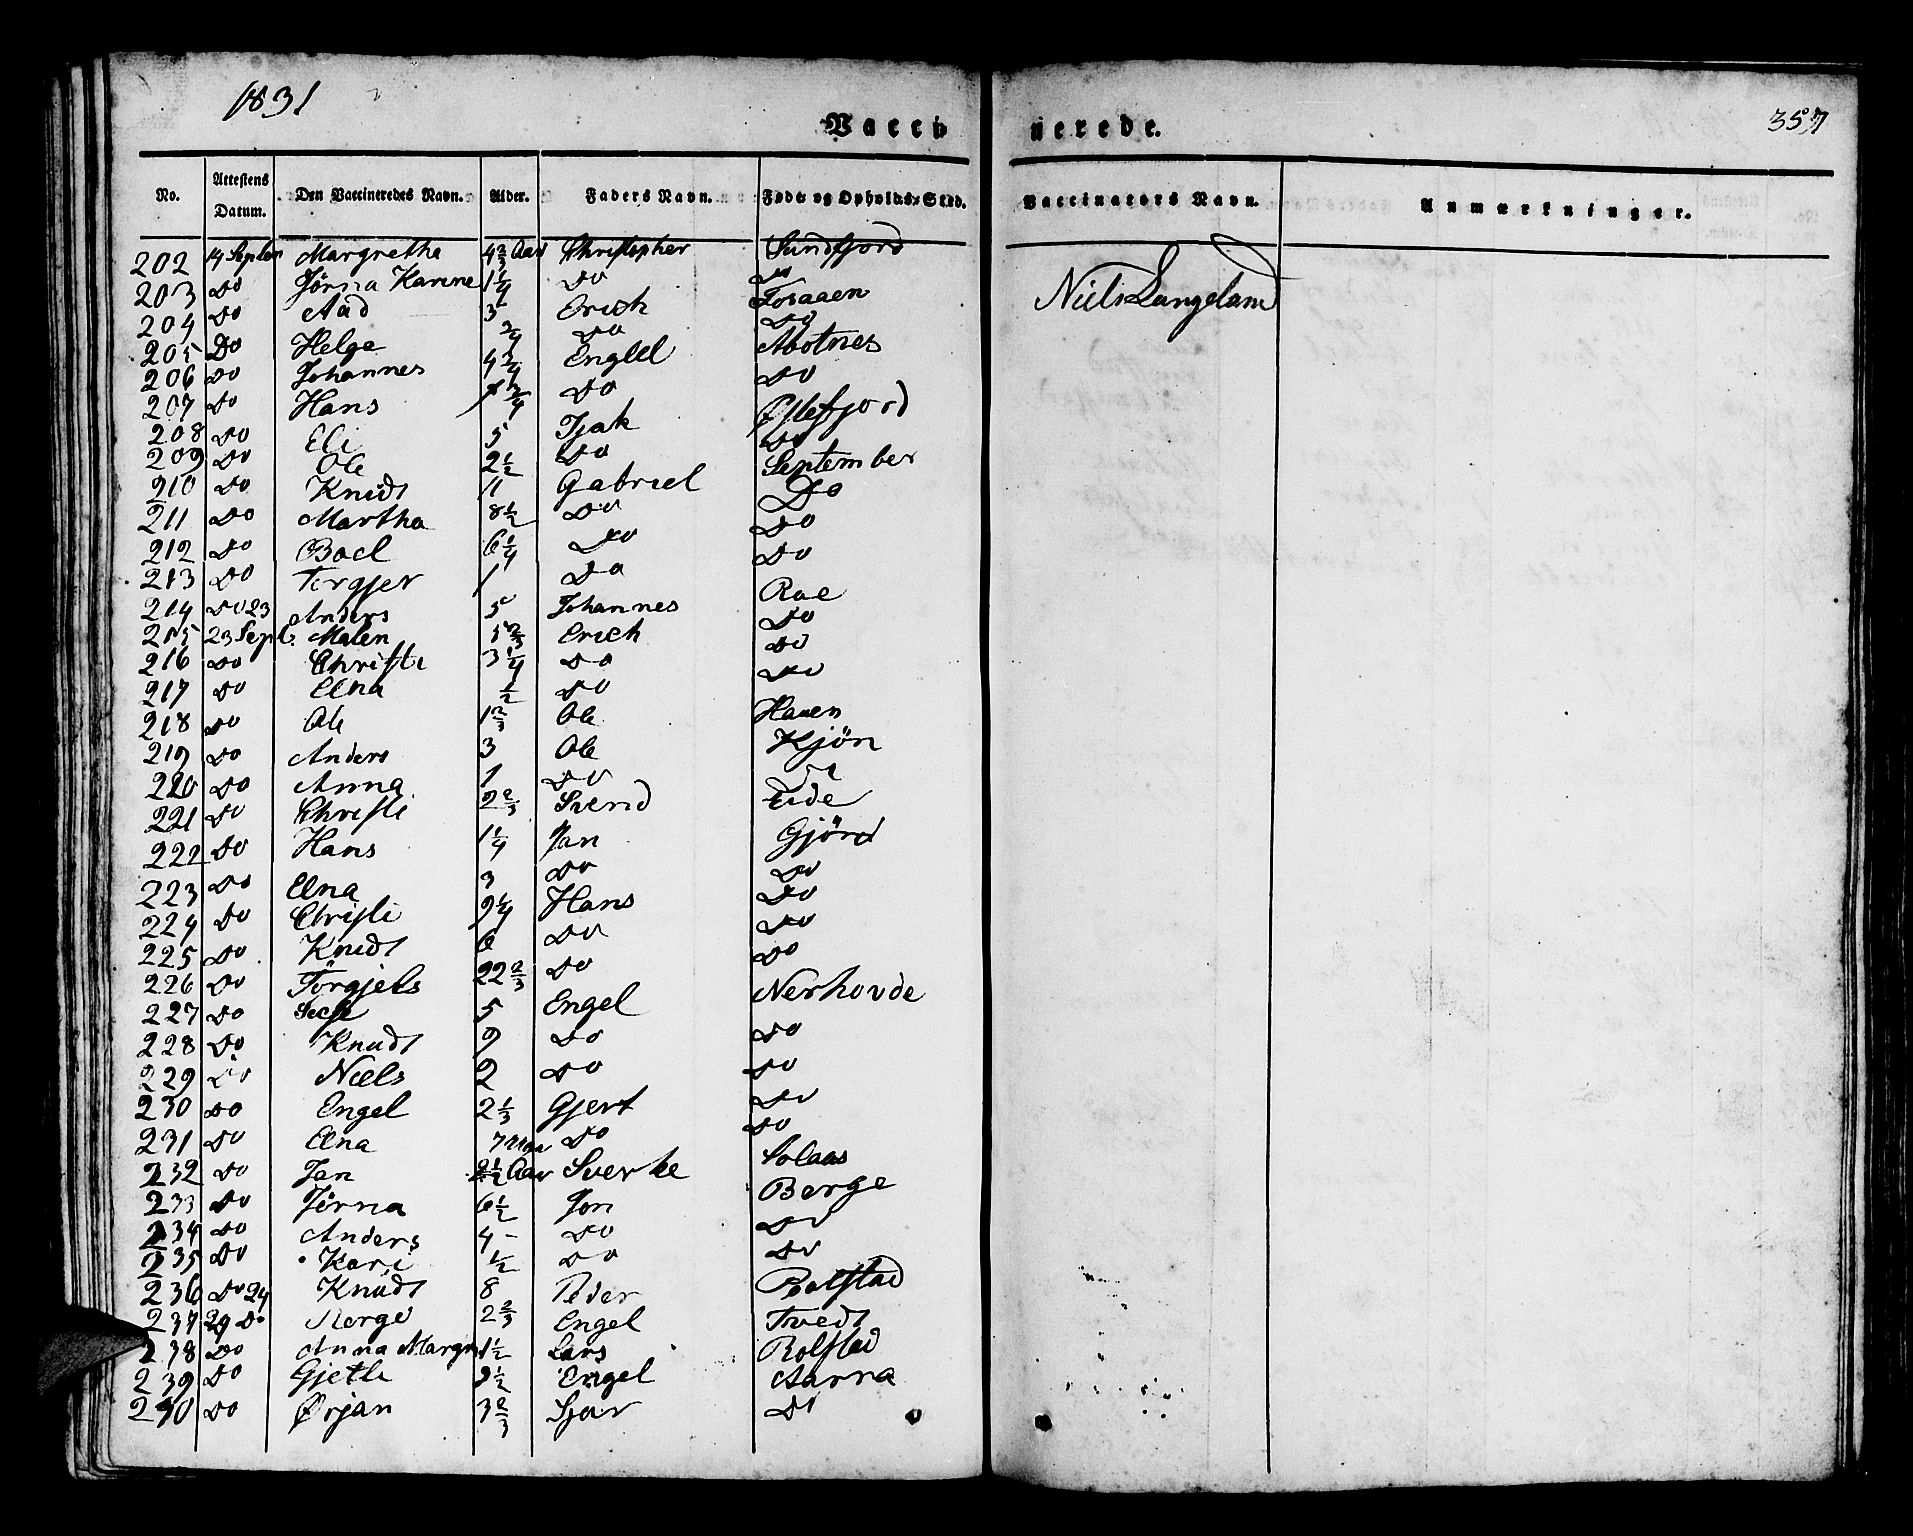 1831
Vaccinerede.
357
No. Attestens Datum. Den Vaccineredes Navn. Alder. Faders Navn. Føde- og Opholds-Sted. Vaccinators Navn. Anmærkninger.
202 14 Septen Margrethe 4 2/3 Aar Christopher Sundfjord
203 Do Jørna Karine 1 1/4 Do Do Niels Langeland
204 Do Aad 3 Erich Tosaaen
205 Do Helge 3/4 Do Do
206 Do Johannes 4 3/4 Engel Abotnes
207 Do Hans 1 3/4 Do Do
208 Do Eli 5 Isak Østefjord
209 Do Ole 2 1/2 Do Do
210 Do Knudt 11 Gabriel September
211 Do Martha 8 1/2 Do Do
212 Do Boel 6 1/4 Do Do
213 Do Torgjer 1 Do Do
214 Do 23 Anders 5 Johannes Roe
215 23 Sept. Malen 5 2/3 Erich Do
216 Do Christi 3 1/4 Do Do
217 Do Elna 1/2 Do Do
218 Do Ole 1 2/3 Ole Hauen
219 Do Anders 3 Ole Kjön
220 Do Anna 1 Do Do
221 Do Christi 2 2/3 Svend Eide
222 Do Hans 1 1/4 Jan Gjörd
223 Do Elna 3 Do Do
224 Do Christi 9 1/4 Hans Do
225 Do Knudt 6 Do Do
226 Do Törgjels 22 2/3 Do Do
227 Do 5 Engel Nerhovde
228 Do Knudt 9 Do Do
229 Do Niels 2 Do Do
230 Do Engel 2 1/3 Gjert Do
231 Do Elna 7 Do Do
232 Do Jan 2 1/2 Aar Sverke Solaas
233 Do Jørna 6 1/2 Jon Berge
234 Do Anders 4 - Do Do
235 Do Kari 1/2 Do Do
236 Do 24 Knudt 8 Peder Rolfstad
237 29 Do Børge 2 2/3 Engel Tvedt
238 Do Anna Margr 1 1/2 Lars Rolfstad
239 Do Gjetle 2 1/2 Engel Aarna
240 Do Ørjan 3 2/3 Sjar Do